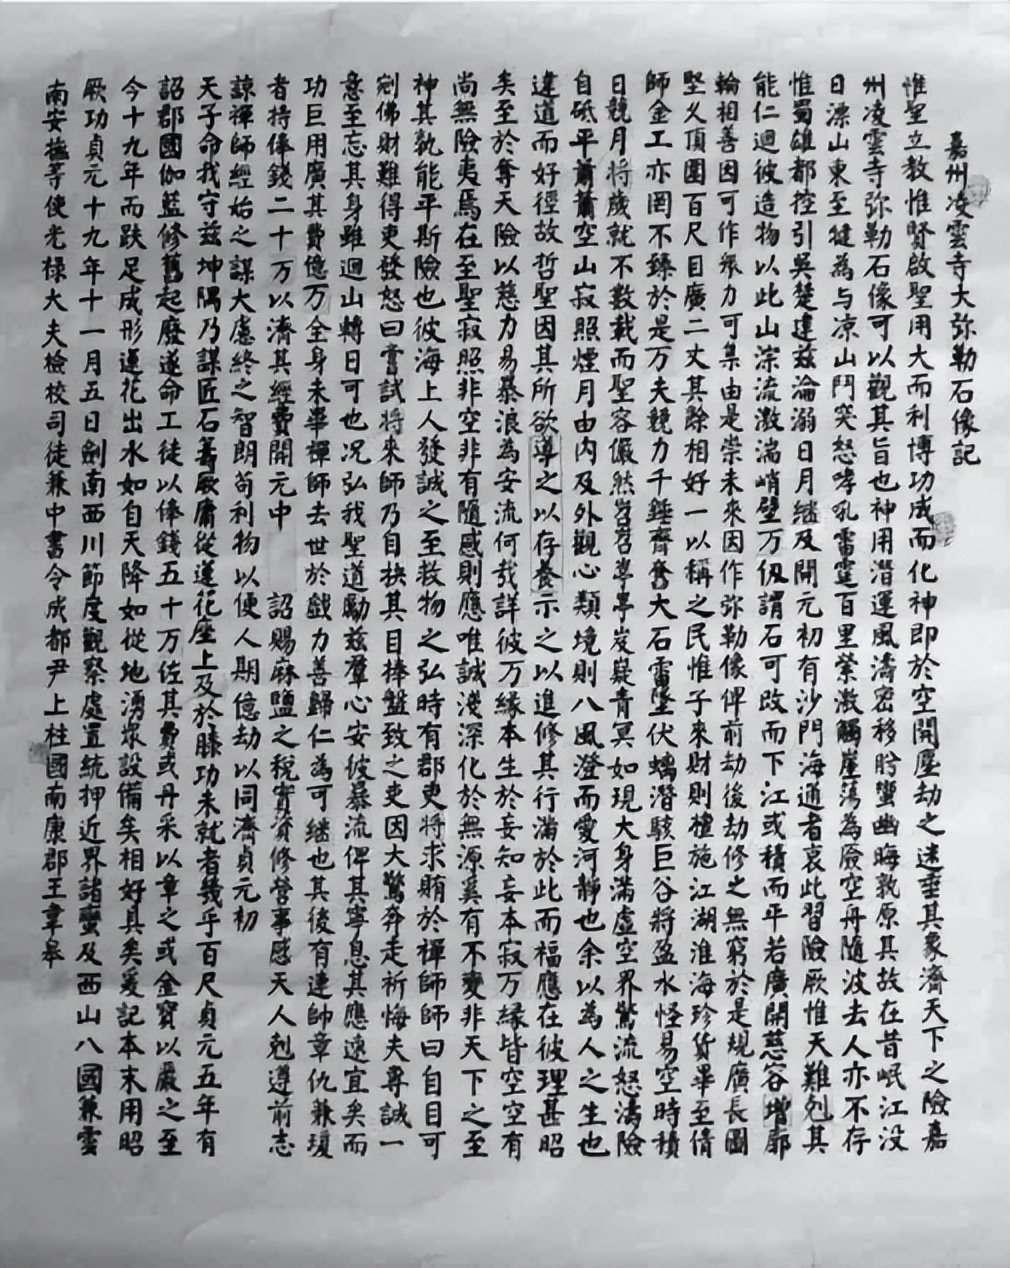 嘉州凌雲寺大弥勒石像記
惟聖立教惟賢啟聖用大而利博功成而化神即於空開塵劫之迷垂其象濟天下之險嘉
州凌雲寺弥勒石像可以觀其旨也神用潛運風濤密移肸蠁幽晦孰原其故在昔岷江没
日漂山東至犍為与凉山鬥突怒哮吼雷霆百里縈激觸崖蕩為廞空舟隨波去人亦不存
惟蜀雄都控引吳楚建兹淪溺日月继及開元初有沙門海通者哀此習險厥惟天難尅其
能仁迴彼造物以此山淙流激湍峭壁万仞謂石可改而下江或積而平若廣開慈容增廓
輪相善因可作衆力可集由是崇未來因作弥勒像俾前劫後劫修之無窮於是規廣長圖
堅久頂圍百尺目廣二丈其除相好一以稱之民惟子來财則檀施江湖淮海珍货畢至俻
師金工亦罔不臻於是万夫競力千錘齊奮大石雷墜伏螭潛駭巨谷將盈水怪易空時積
日競月将歲就不数载而聖容儼然岧岧亭亭岌嶷青冥如現大身滿虛空界驚流怒濤險
自砥平蕭蕭空山寂照煙月由内及外觀心類境則八風澄而愛河靜也余以為人之生也
違道而好徑故哲聖因其所欲導之以存養示之以進修其行滿於此而福應在彼理甚昭
矣至於奪天險以慈力易暴浪為安流何哉詳彼万緣本生於妄知妄本寂万缘皆空空有
尚無險夷焉在至聖寂照非空非有隨感則應唯誠淺深化於無源奚有不變非天下之至
神其孰能平斯險也彼海上人發誠之至救物之弘時有郡吏将求賄於禅師師曰自目可
剜佛财難得吏發怒曰嘗試将來師乃自抉其目捧盤致之吏因大驚奔走祈悔夫專誠一
意至忘其身雖迴山轉日可也况弘我聖道勵兹羣心安彼暴流俾其寧息其應速宜矣而
功巨用廣其費億万全身未畢禪師去世於戲力善歸仁為可继也其後有連帥章仇兼瓊
者持俸錢二十万以濟其經費開元中　詔賜麻鹽之税實資修營事感天人尅遵前志
諒禪師經始之謀大慮終之智朗苟利物以便人期億劫以同濟貞元初
天子命我守兹坤隅乃謀匠石筹厥庸從蓮花座上及於膝功未就者幾乎百尺貞元五年有
詔郡國伽藍修舊起廢遂命工徒以俸錢五十万佐其費或丹采以章之或金寶以嚴之至
今十九年而趺足成形蓮花出水如自天降如從地湧眾設備矣相好具矣爰記本末用昭
厥功貞元十九年十一月五日劍南西川節度觀察處置統押近界諸蠻及西山八國兼雲
南安撫等使光禄大夫檢校司徒兼中書令成都尹上柱國南康郡王韋皋